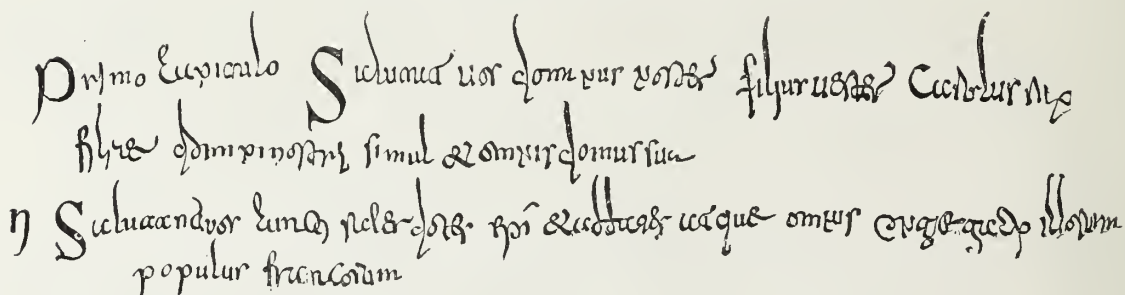 Primo capitulo Salutat uos dominus noster filius uester Carolus rex
filiae domini nostri simul & omnis domus sua
II Salutant uos cuncti sacerdotes epi & abbates atque omnis congregatio illorum
populus francorum